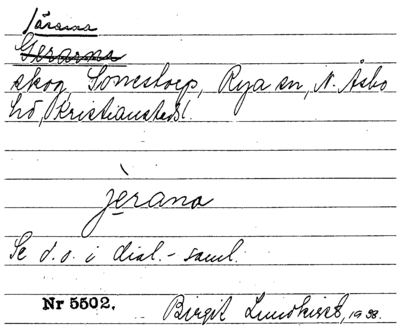 Järarna
Gerarna
skog, Sonestorp, Rya sn, N. Åsbo
hd, Kristianstads l.
jèrana
Se d.o. i dial.-saml.
Nr 5502. Birgit Lundkvist, 1938.